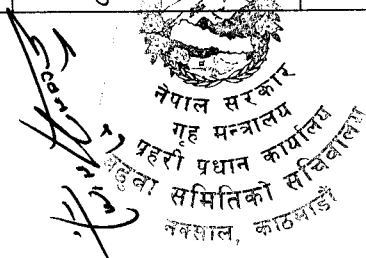 नेपाल सरकार
गृह मन्त्रालय
प्रहरी प्रधान कार्यालय
बढुवा समितिको सचिवालय
नक्साल, काठमाडौं